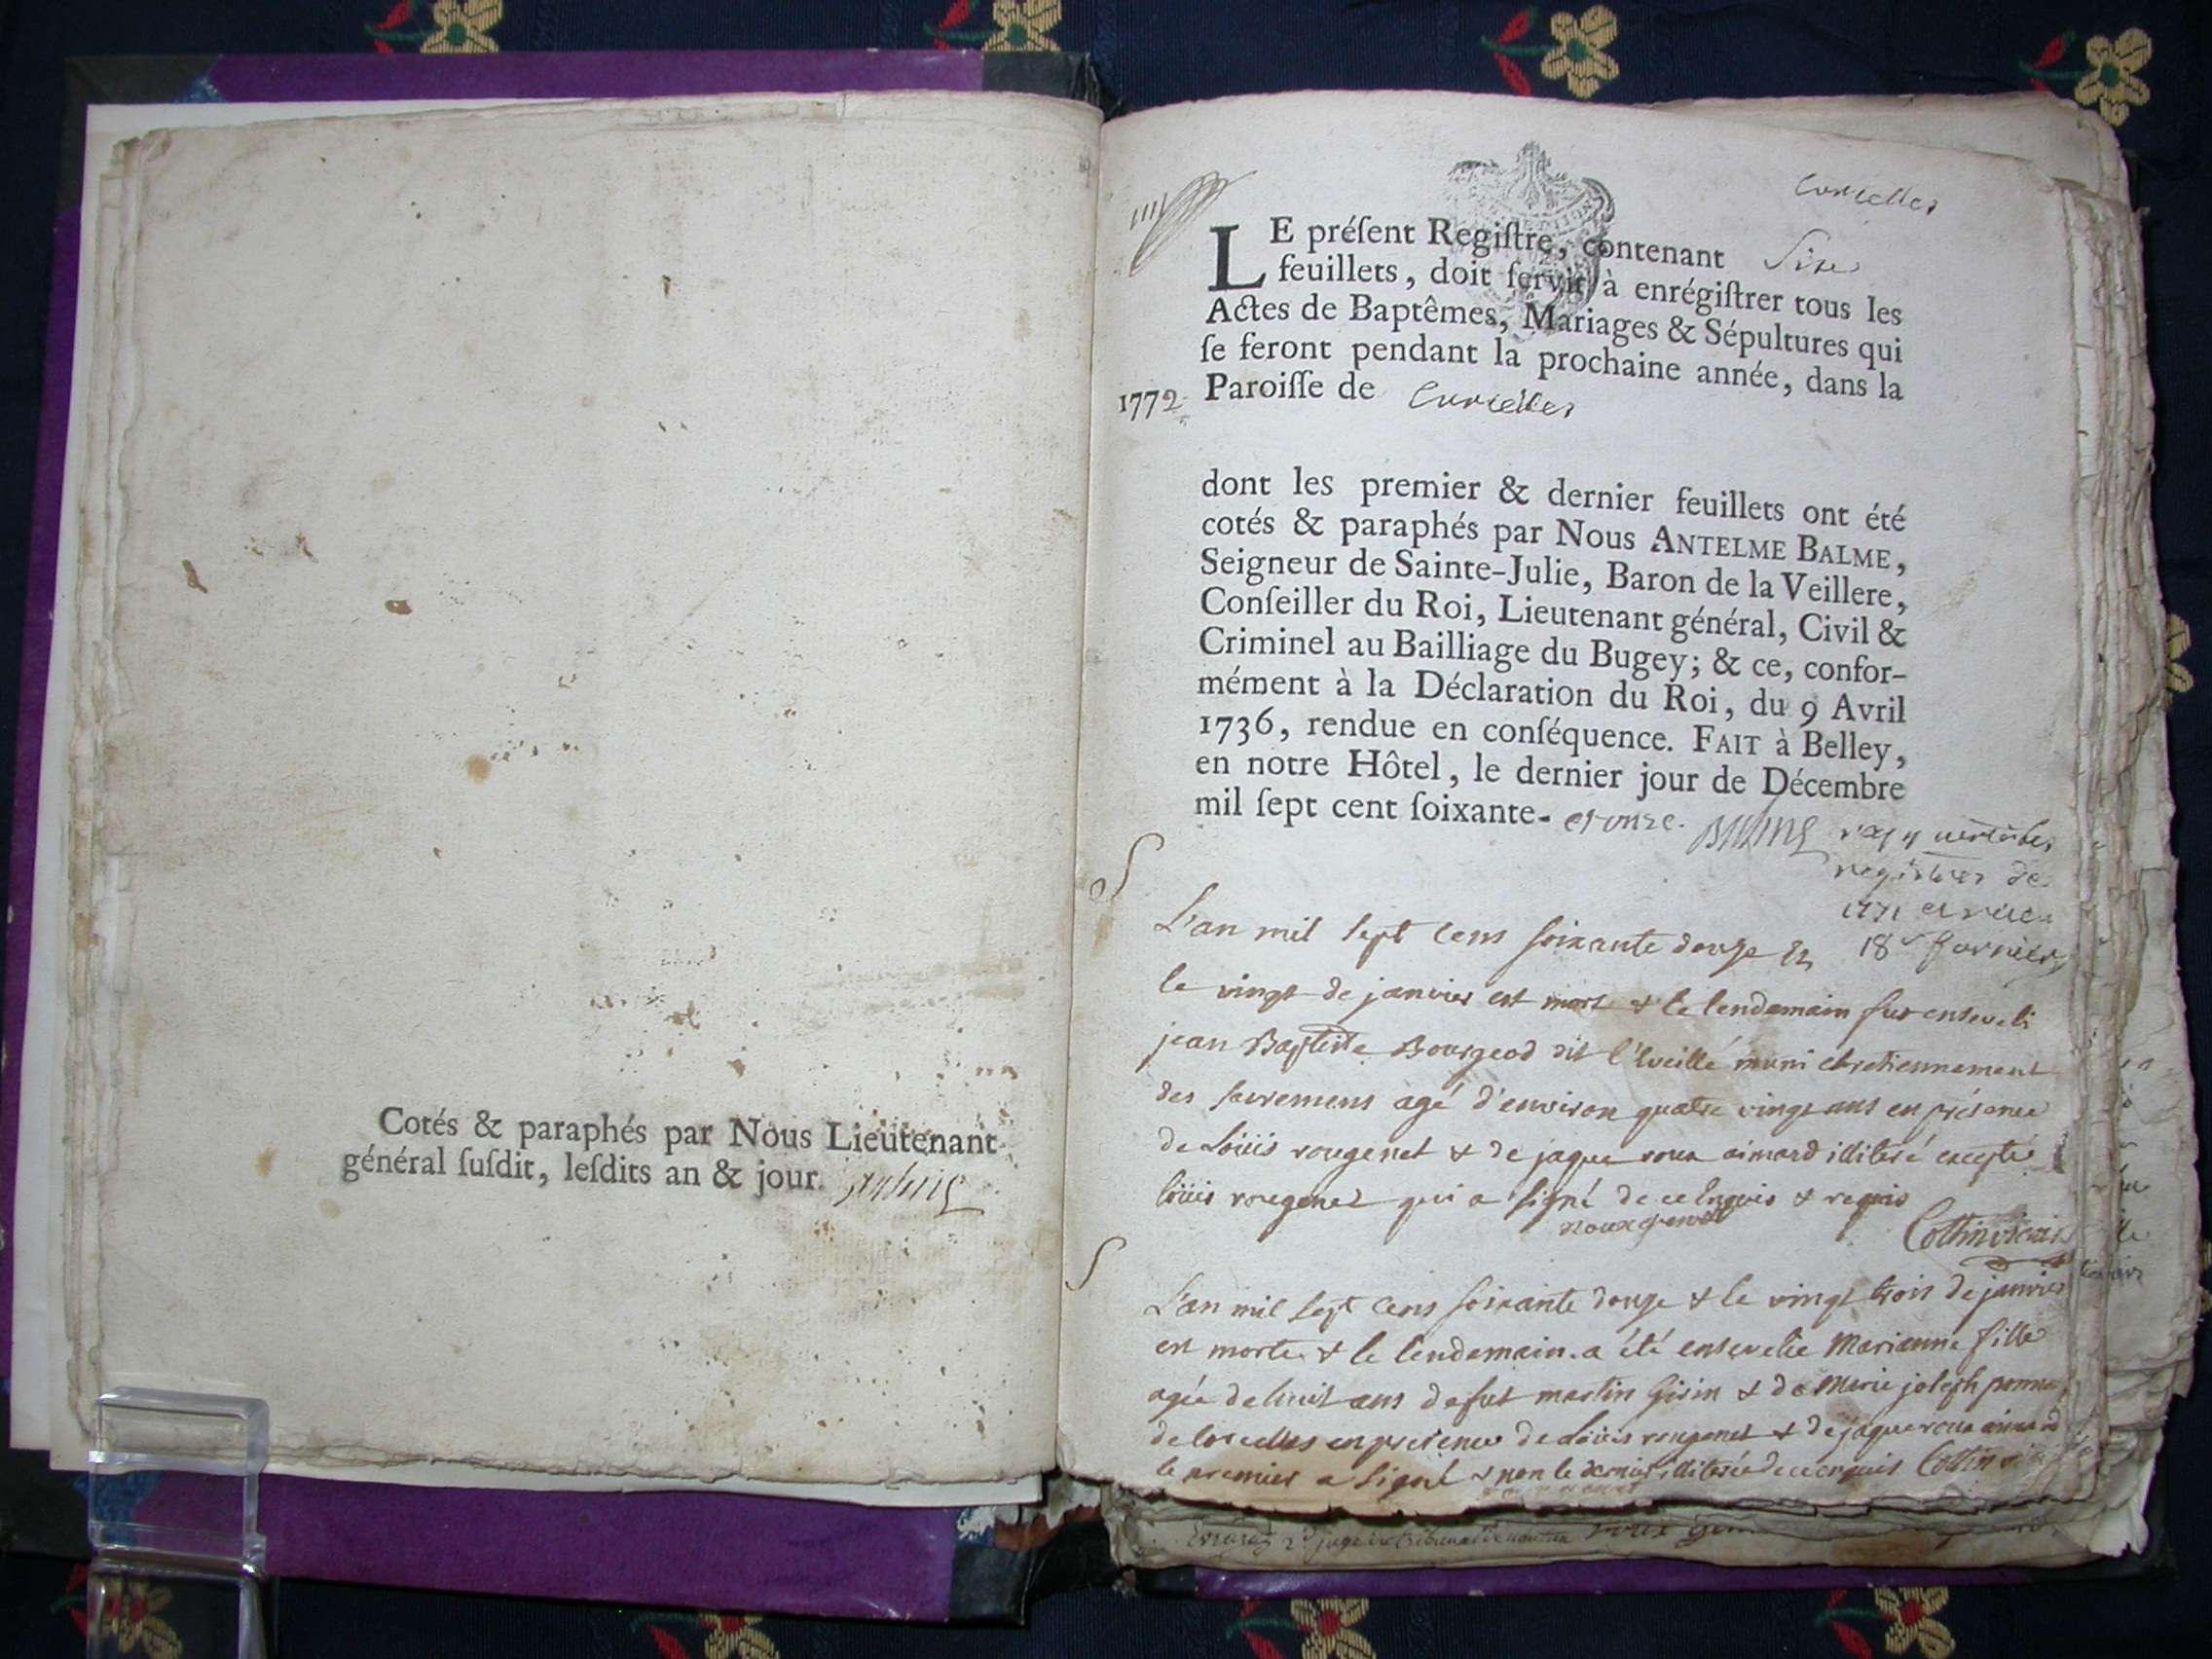 Cotés & paraphés par Nous Lieutenant
général ſuſdit, leſdits an & jour.
Corcelles
LE préſent Regiſtre, contenant Six
feuillets, doit ſervir à enrégiſtrer tous les
Actes de Baptêmes, Mariages & Sépultures qui
ſe feront pendant la prochaine année, dans la
1772. Paroiſſe de Corcelles
dont les premier & dernier feuillets ont été
cotés & paraphés par Nous ANTELME BALME,
Seigneur de Sainte-Julie, Baron de la Veillere,
Conſeiller du Roi, Lieutenant général, Civil &
Criminel au Bailliage du Bugey; & ce, confor-
mément à la Déclaration du Roi, du 9 Avril
1736, rendue en conſéquence. FAIT à Belley,
en notre Hôtel, le dernier jour de Décembre
mil ſept cent ſoixante- et onze. Balme
registres de
1771
18
L'an mil sept cens soixante douze &
le vingt de janvier est mort & le lendemain fut enseveli
jean Baptiste Bourgeod dit l'éveillé muni chretiennement
des sacremens agé d'environ quatre vingt ans en présence
de Loüis rougenet & de jaque roux aimard illiteré excepté
loüis rougenet qui a signé de ce Enquis & requis
Collin vicaire
L'an mil sept cens soixante douze & le vingt trois de janvier
est morte & le lendemain a été ensevelie Marianne fille
agée de huit ans de fut martin Girin & de Marie joseph
de Corcelles en présence de Loüis rougenet & de jaque roux aimard
le premier a signé & non le dernier illiteré de ce enquis Collin